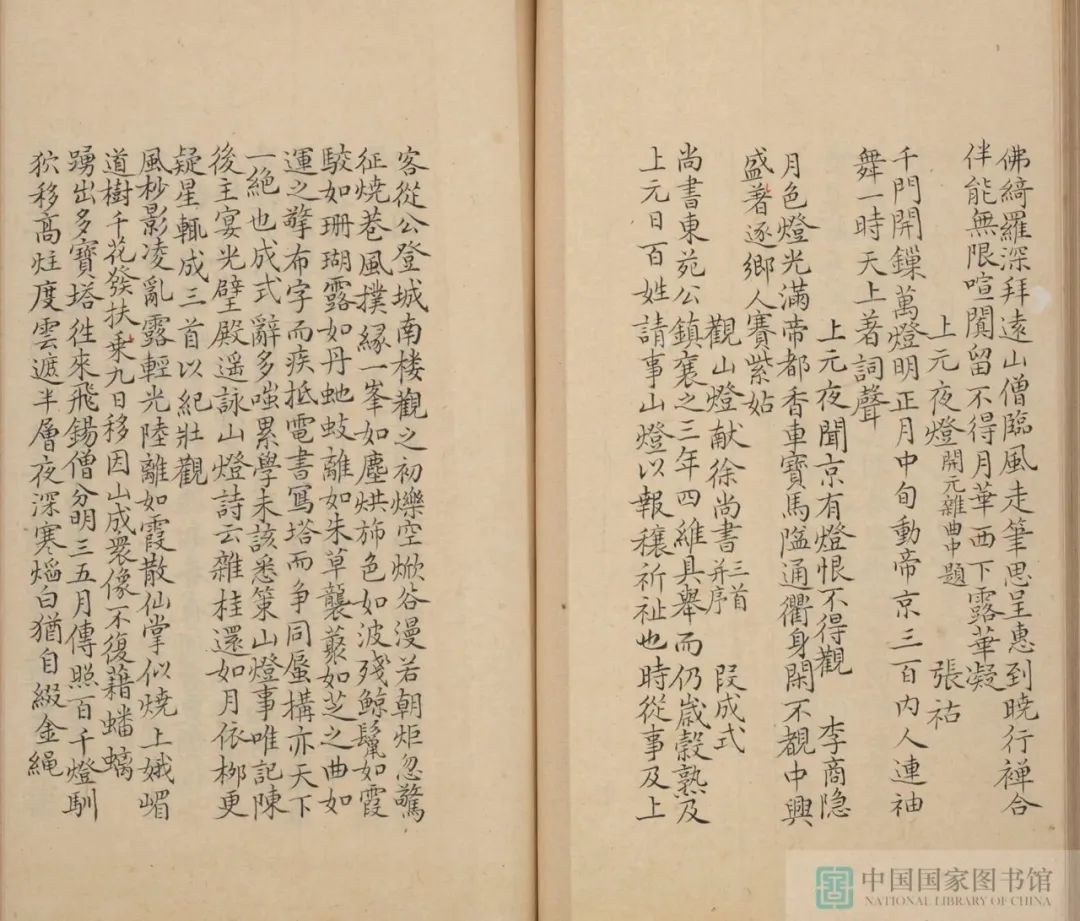 佛綺羅深拜遠山僧臨風走筆思呈惠到曉行禪合
伴能無限喧闐留不得月華西下露華凝
上元夜燈開元雜曲中題 張祜
千門開鏁萬燈明正月中旬動帝京三百内人連袖
舞一時天上著詞聲
上元夜聞京有燈恨不得觀 李商隐
月色燈光滿帝都香車寶馬隘通衢身閑不覩中興
盛著逐鄉人賽紫姑
觀山燈献徐尚書三首并序 段成式
尚書東苑公鎮襄之三年四維具舉而仍歲糓熟及
上元日百姓請事山燈以報穰祈祉也時從事及上
客從公登城南楼觀之初爍空焮谷漫若朝炬忽驚
征燒巷風撲緣一峯如塵烘斾色如波殘鲸鬣如霞
駮如珊瑚露如丹虵蛟離如朱草襲叢如芝之曲如
運之擎布字而疾抵電書寫塔而争同蜃構亦天下
一絶也成式辭多嗤累學未該悉策山燈事唯記陳
後主宴光璧殿遥詠山燈詩云雜桂還如月依栁更
疑星輒成三首以紀壯觀
風杪影凌亂露輕光陸離如霞散仙掌似燒上娥嵋
道樹千花發扶乗九日移因山成衆像不復藉蟠螭
踴出多寶塔往來飛錫僧分明三五月傳照百千燈馴
狖移高炷度雲遮半層夜深寒焰白猶自綴金繩
中国国家图书馆
NATIONAL LIBRARY OF CHINA